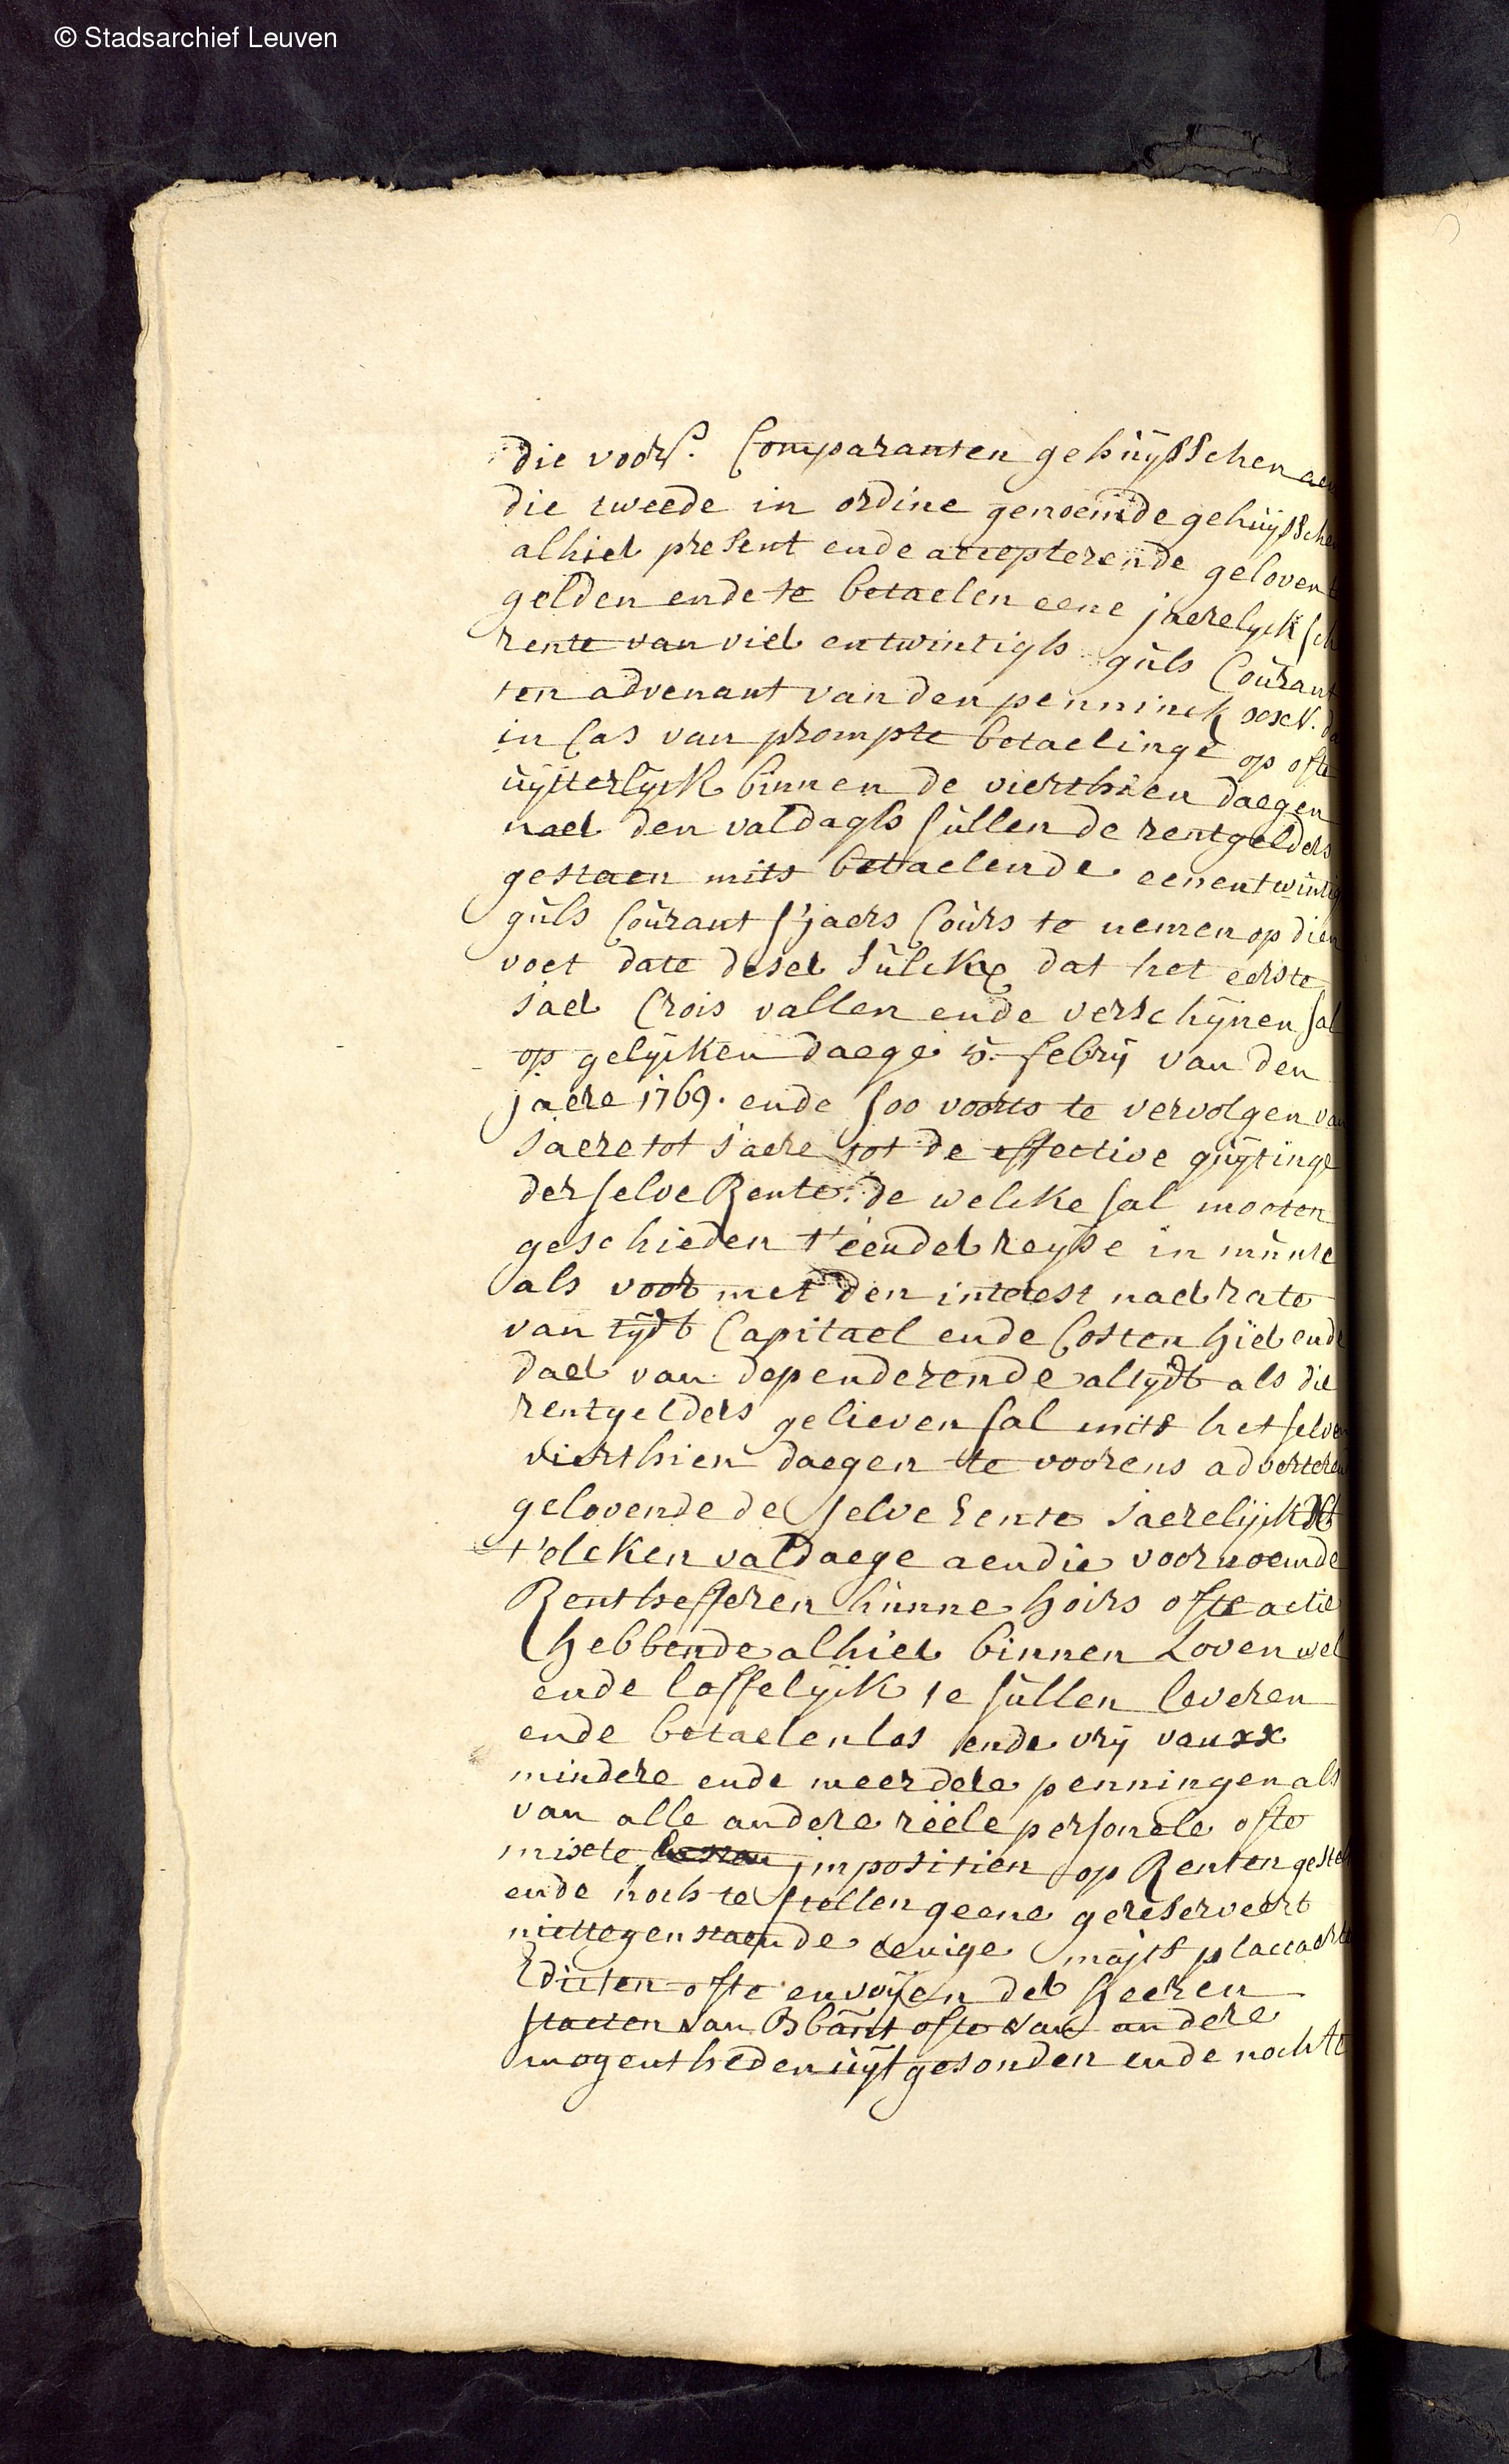 © Stadsarchief Leuven
die voors. Comparanten gehuijsschen aen
die tweede in ordine genoemde gehuijssche
alhier present ende accepterende geloven t
gelden ende te betaelen eene jaerelijck sch
rente van vier entwintigh guls Courant
ten advenant van den penninck
in Cas van prompte betaelinge op ofte
uijtterlijck binnen de vierthien daegen
naer den valdagh sullen de rentgelders
gestaen mits bettaelende eenentwintig
guls Courant s'jaers Cours te nemen op dien
voet date deser sulckx dat het eerste
jaer Crois vallen ende verschijnen sal
op gelijcken daege 5. febrij van den
jaere 1769. ende soo voorts te vervolgen van
jaere tot jaere tot de effective quijtinge
der selve Rente. de welcke sal moeten
geschieden t'eender reijse in munte
als voor met den interest naer rate
van tijdt Capitael ende Costen hier ende
daer van dependerende altijdt als die
rentgelders gelieven sal mits het selve
vierthien daegen te voorens adverteren
gelovende de selve rente jaerelijckx
t'elcken valdaege aen die voornoemde
Rentheffferen hunne hoirs ofte actie
hebbende alhier binnen Loven wel
ende loffelijck te sullen leveren
ende betaelen los ende vrij van xx
mindere ende meerdere penningen als
van alle andere reële personele ofte
mixte impositien op Renten gestel
ende noch te stellen geene gereserveert
niettegenstaende eenige majts placcaerte
Edicten ofte envoijen der heeren
staeten van Bbant ofte van andere
mogentheden uijtgesonden ende noch te